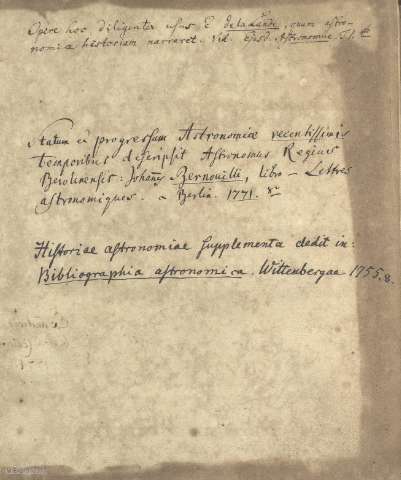 Opere hoc diligenter usus E. de la Lande, quum astro-
nomiae historiam narraret. Vid. Ejusd. Astronomie T. I.
Statum et progressum Astronomiae recentissimis
temporibus descripsit Astronomus Regius
Berolinensis: Johann Bernouilli, libro - Lettres
astronomiques. à Berlin. 1771. 8.
Historiae astronomiae supplementa dedit in:
Bibliographia astronomica. Wittenbergae 1755. 8.